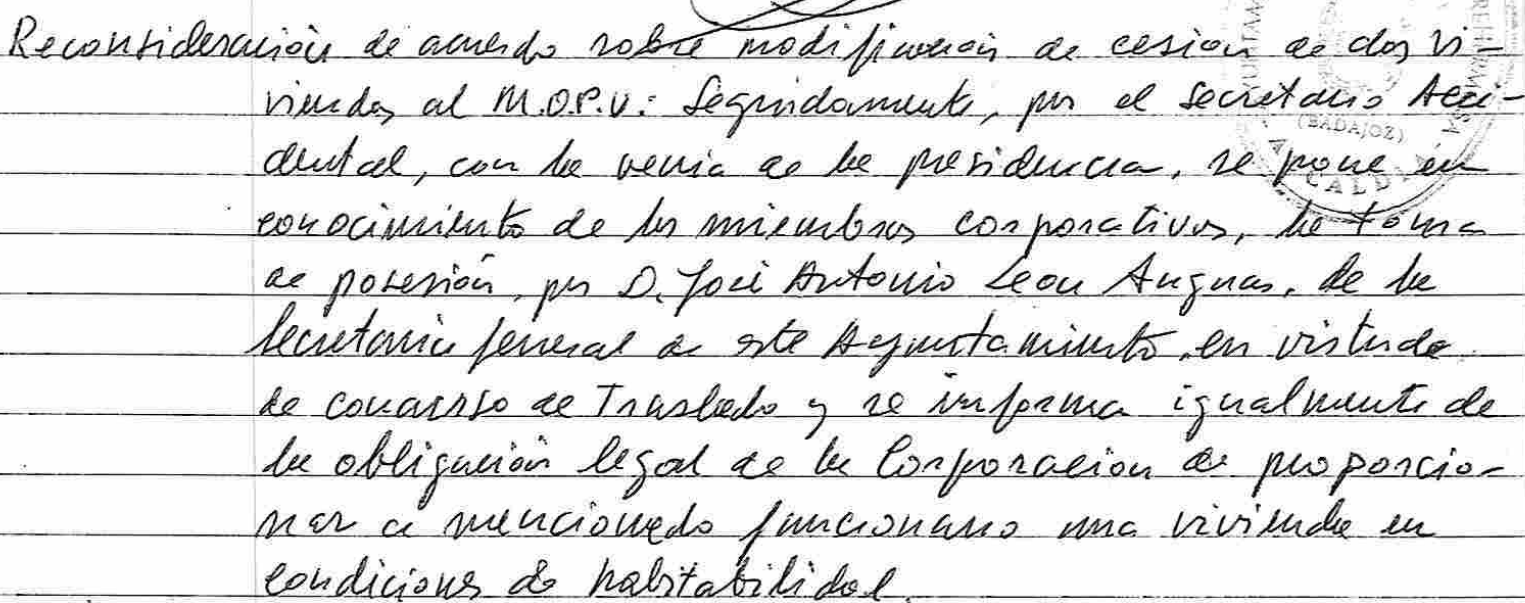 Reconsideración de acuerdo sobre modificación de cesion de dos vi-
viendas al M.O.P.U.: Seguidamente, por el Secretario Acci-
dental, con la venia de la presidencia, se pone en
conocimiento de los miembros corporativos, la toma
de posesión, por D. José Antonio Leon Anguas, de la
Secretaria General de este Ayuntamiento, en virtud de
de concurso de Traslado y se informa igualmente de
la obligación legal de la Corporacion de proporcio-
nar a mencionado funcionario una vivienda en
condiciones de habitabilidad.
(BADAJOZ)
ALCALDIA